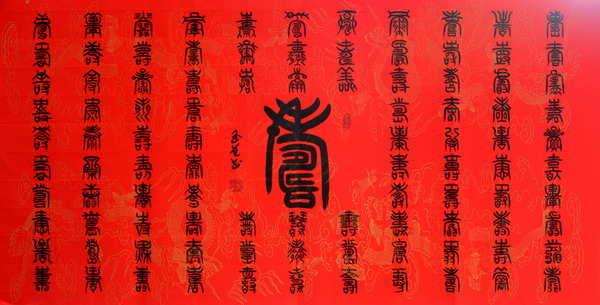 壽壽壽壽壽壽壽壽壽壽
壽壽壽壽壽壽壽壽壽壽
壽壽壽壽壽壽壽壽壽壽
壽壽壽壽壽壽壽壽壽壽
壽壽壽
壽壽壽
壽壽壽
壽
壽壽壽
壽壽壽
壽壽壽
壽壽壽壽壽壽壽壽壽壽
壽壽壽壽壽壽壽壽壽壽
壽壽壽壽壽壽壽壽壽壽
壽壽壽壽壽壽壽壽壽壽